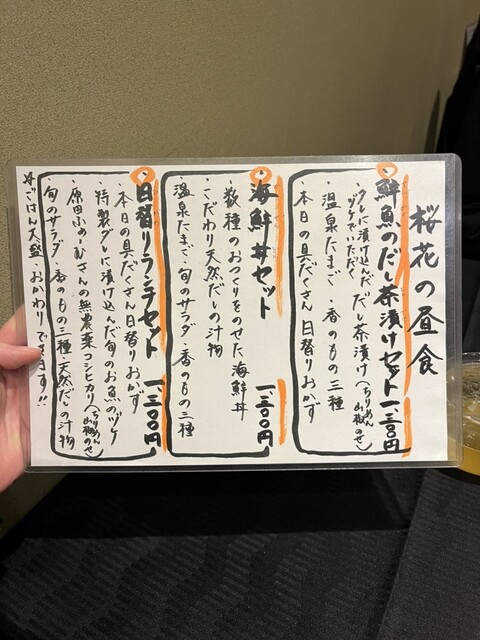 桜花の昼食
鮮魚のだし茶漬けセット 一、三〇〇円
・タレに漬け込んだ だし茶漬け(ちりめん山椒のせ)
づけでいただく
・温泉たまご ・香のもの三種
・本日の具だくさん日替りおかず
海鮮丼セット 一、三〇〇円
・数種のおつくりをのせた海鮮丼
・こだわり天然だしの汁物
・温泉たまご・旬のサラダ・香のもの三種
日替りランチセット 一、三〇〇円
・本日の具だくさん日替りおかず
・特製タレに漬け込んだ旬のお魚のヅケ
・原田ふぁーむさんの無農薬コシヒカリ(ちりめん山椒のせ)
・旬のサラダ・香のもの三種・天然だしの汁物
※ごはん大盛・おかわりできます!!